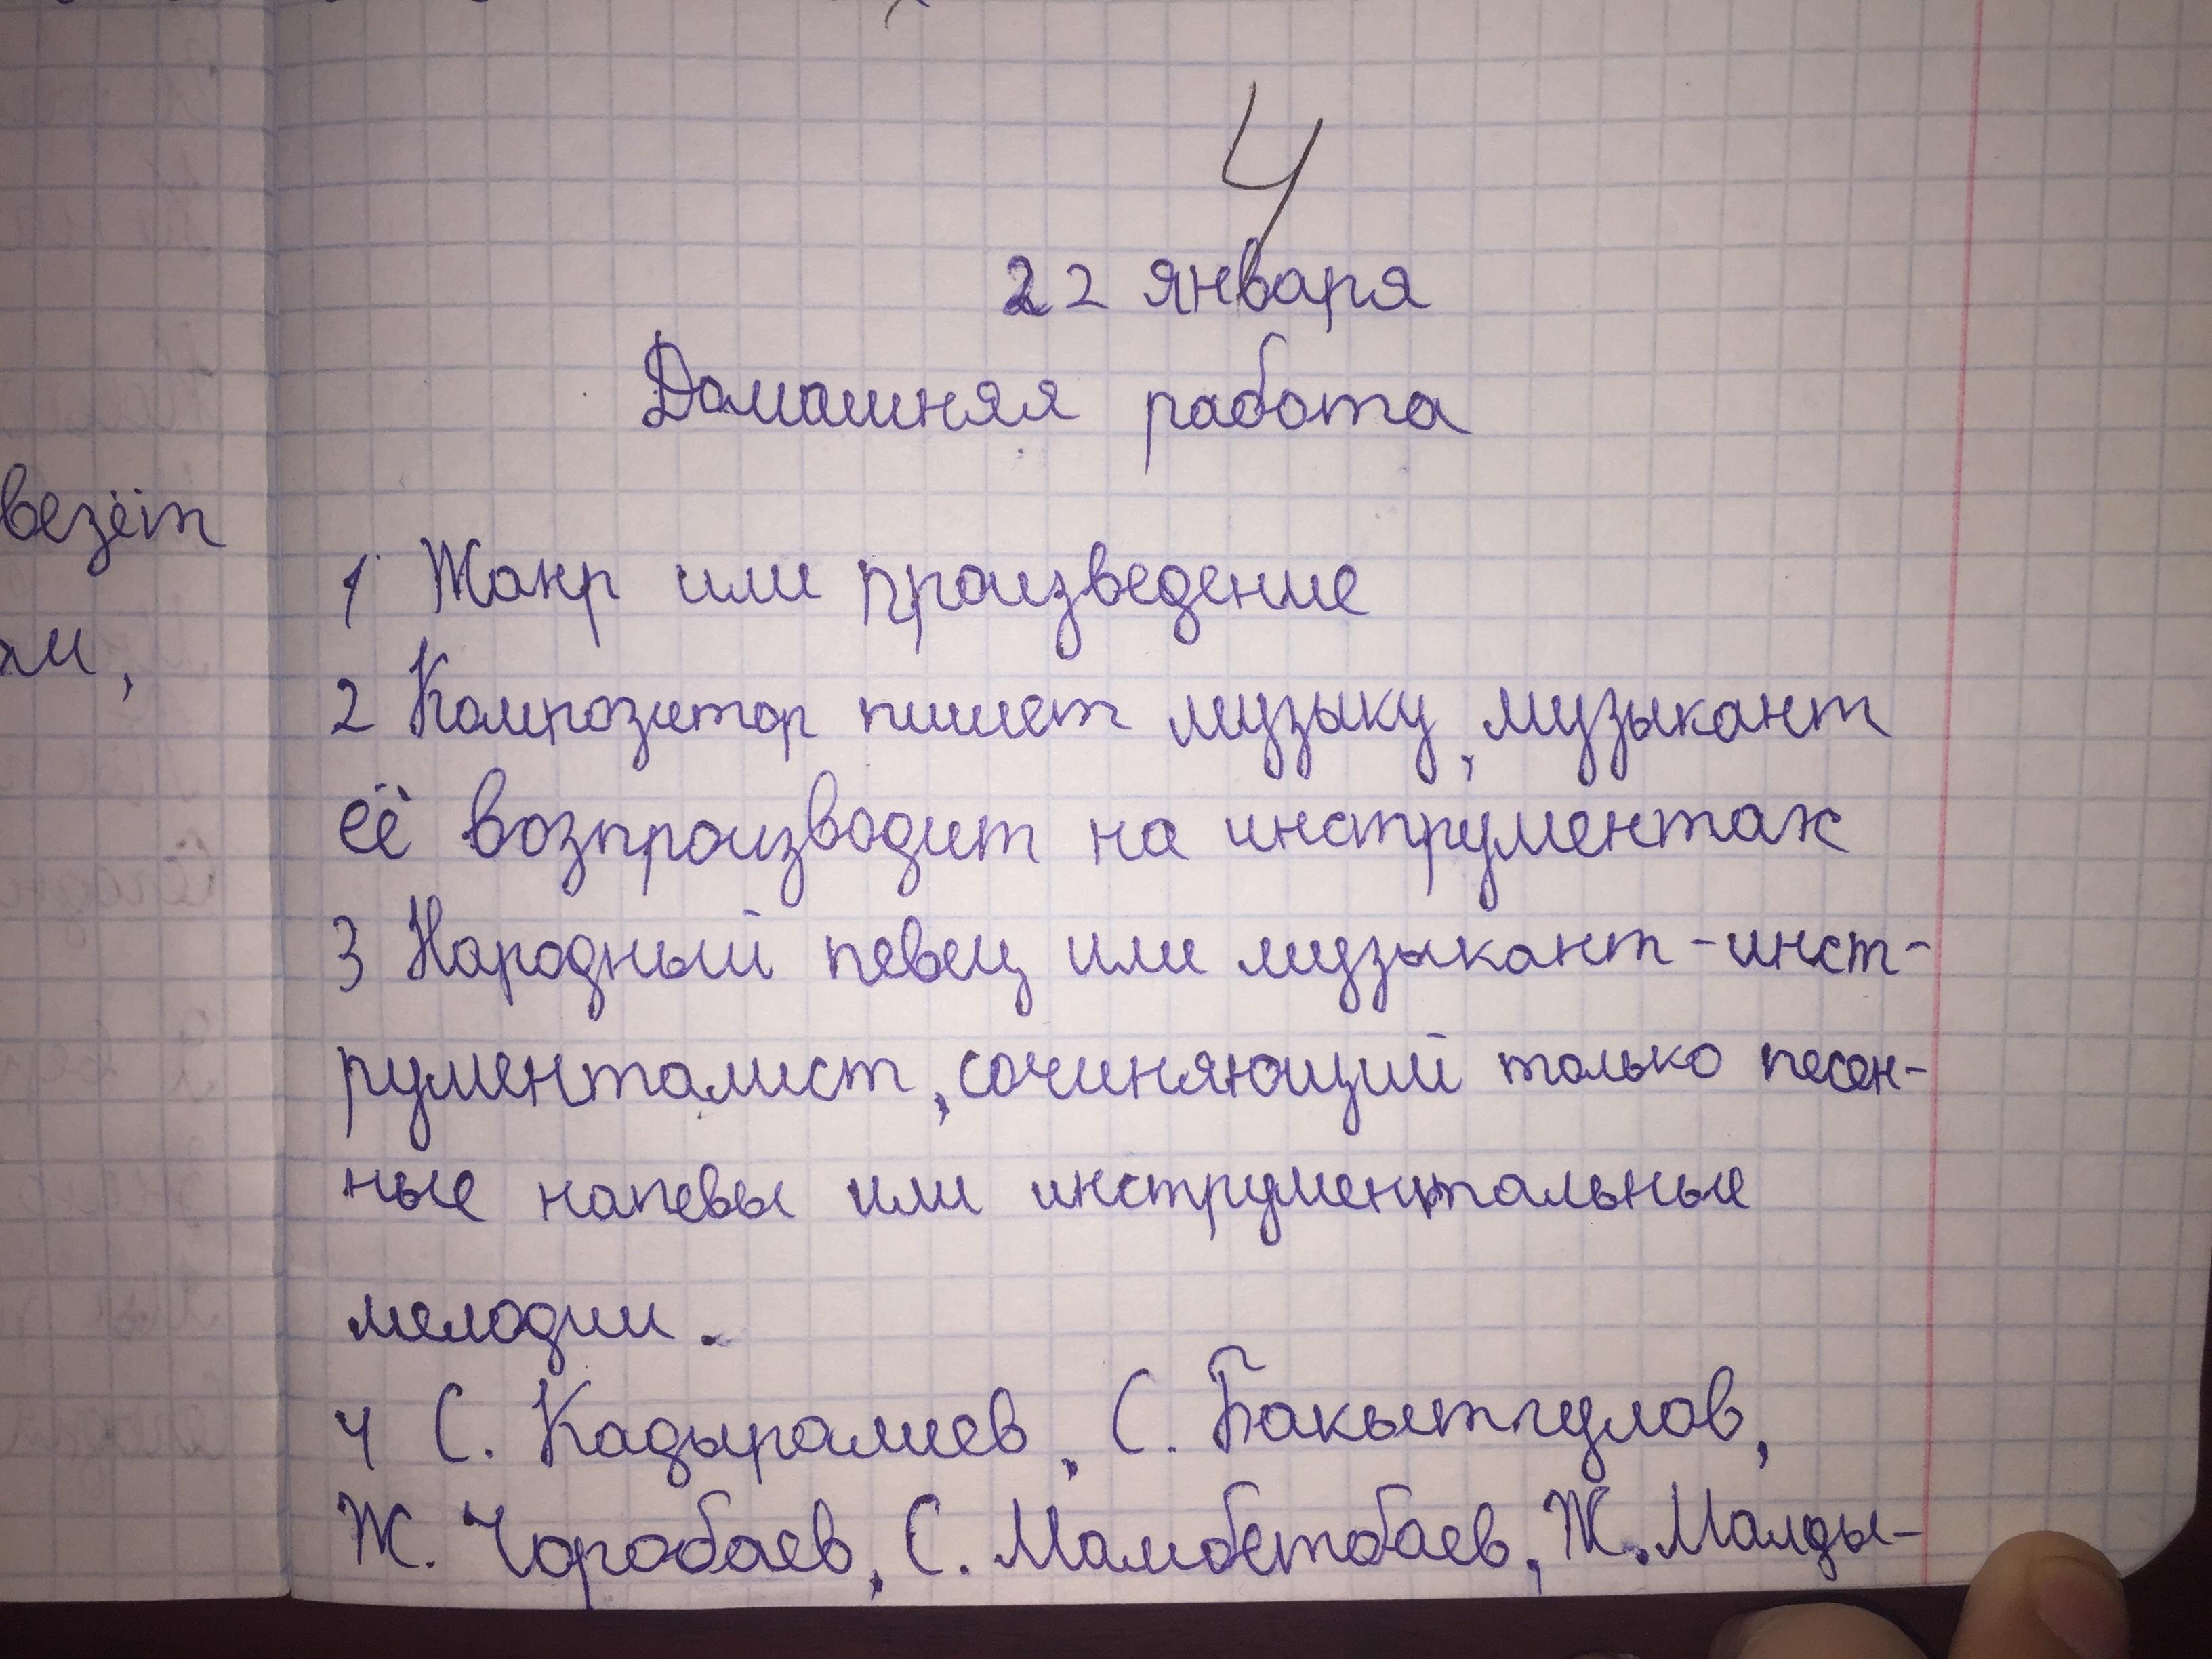 4
22 января
Домашняя работа
везёт
ам,
1 Жанр или произведение
2 Композитор пишет музыку, музыкант
её возпроизводит на инструментах
3 Народный певец или музыкант-инст-
рументалист, сочиняющий только песен-
ные напевы или инструментальные
мелодии.
4 С. Кадыралиев, С. Бакытгулов,
Ж. Чоробаев, С. Мамбетбаев, Ж. Малды-